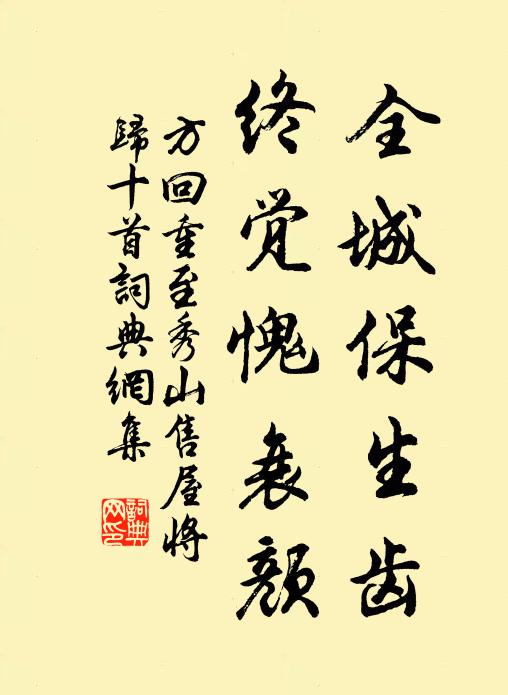 全城保生齿
终觉愧衰颜
方回重至秀山售屋将
歸十首詞典網集
詞典
网印